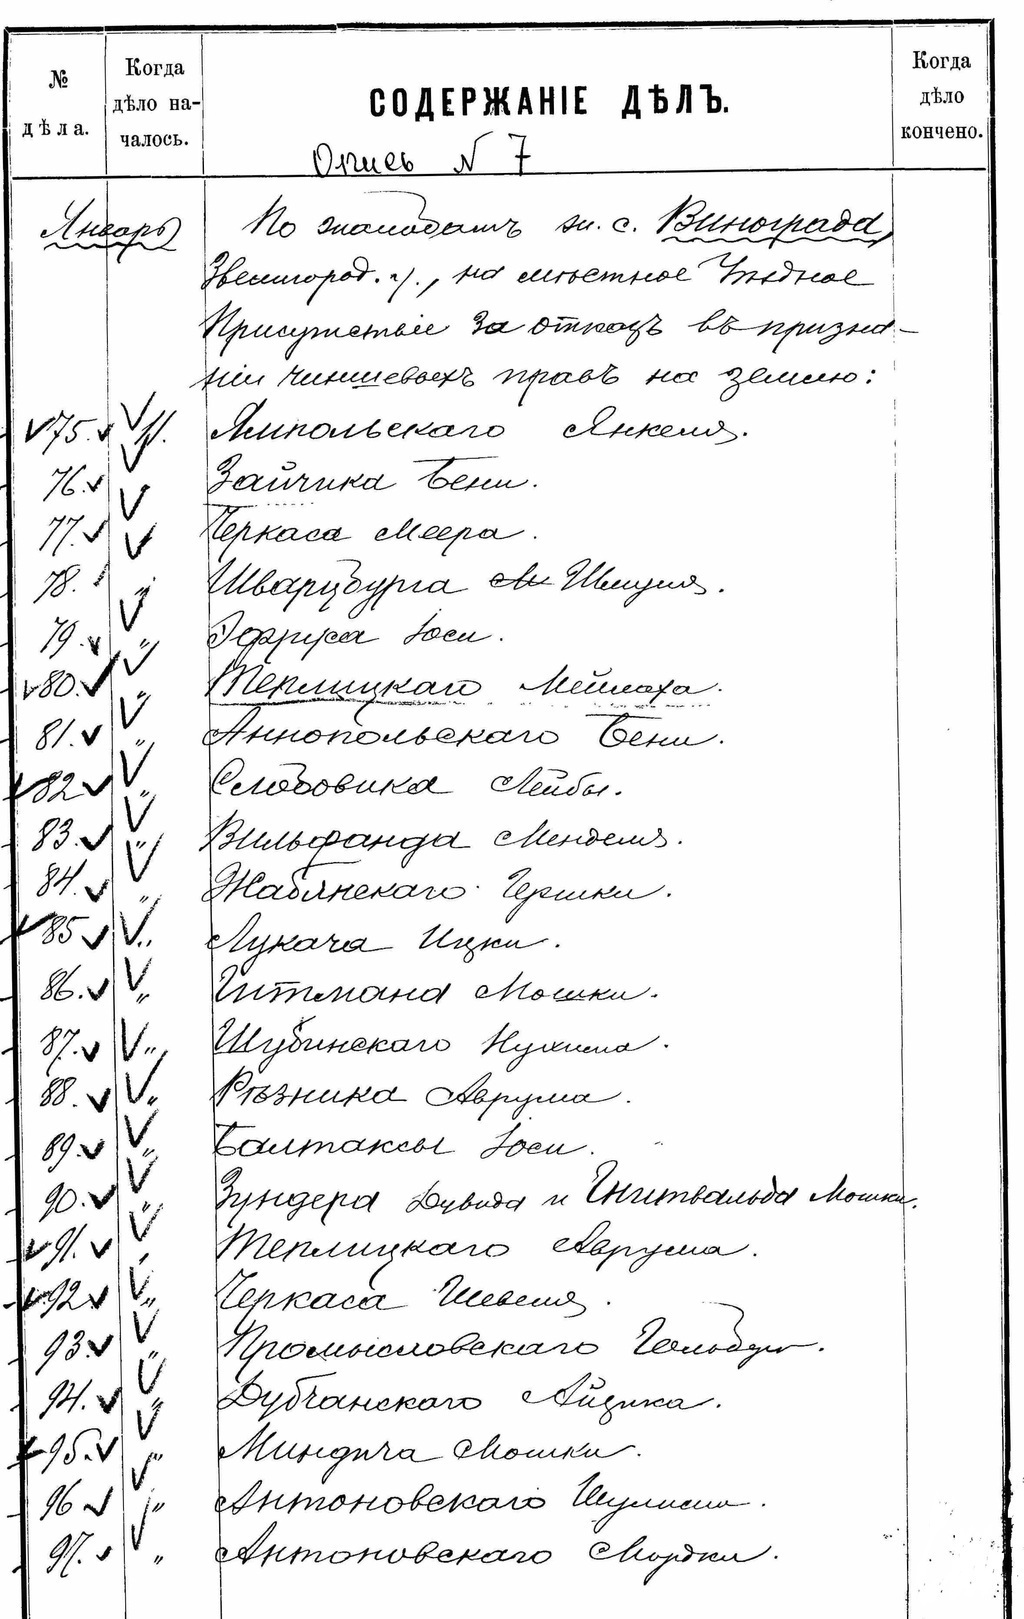 № дѣла.
Когда дѣло началось.
СОДЕРЖАНІЕ ДѢЛЪ.
Когда дѣло кончено.
Опись N 7
Январь
По жалобамъ ж. с. Винограда,
Звенигород. у., на мѣстное Уѣздное
Присутствіе за отказъ въ призна-
ніи чиншевыхъ правъ на землю:
75. 11. Ямпольскаго Янкеля.
76. " Зайчика Бени.
77. " Черкаса Меера.
78. " Шварцбурга Шмуля.
79. " Эффуса Іоси.
80. " Теплицкаго Мейлаха.
81. " Аннопольскаго Бени.
82 " Слободовика Лейбы.
83. " Вильфанда Менделя.
84. " Жабянскаго Гершки.
85 " Лукача Ицки.
86. " Гитмана Мошки.
87. " Шубинскаго Нухима.
88. " Рѣзника Аврума.
89. " Балтаксы Іоси.
90. " Зундера Дувида и Гнитвальда Мошки.
91. " Теплицкаго Аврума.
92 " Черкаса Шевеля.
93. " Промысловскаго
94. " Дубчанскаго Айзика.
95. " Миндича Мошки.
96 " Антоновскаго Шулима.
97. " Антоновскаго Мордки.